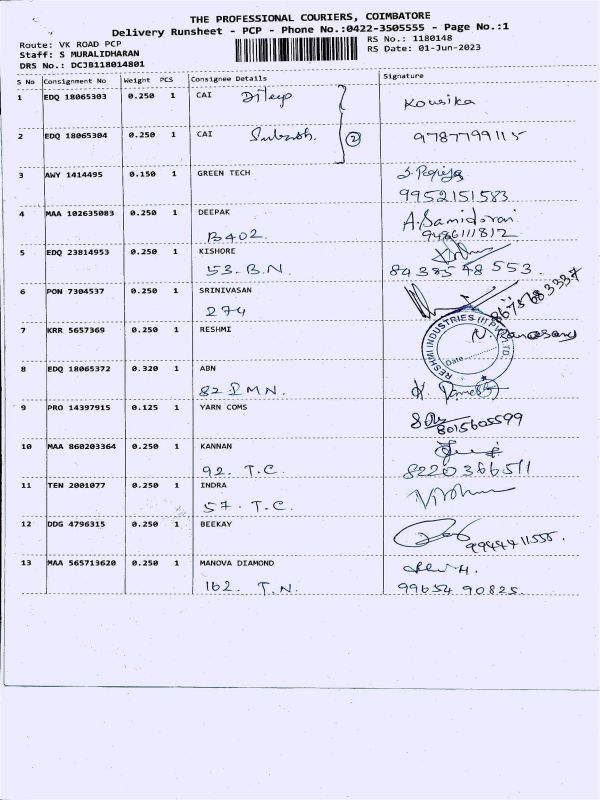 THE PROFESSIONAL COURIERS, COIMBATORE
Delivery Runsheet - PCP - Phone No.:0422-3505555 - Page No.:1
Route: VK ROAD PCP RS No.: 1180148
Staff: S MURALIDHARAN RS Date: 01-Jun-2023
DRS No.: DCJB118014801
S No Consignment No Weight PCS Consignee Details Signature
1 EDQ 18065303 0.250 1 CAI Dileep Kousika
2 EDQ 18065304 0.250 1 CAI Subash. 2 9787799115
3 AWY 1414495 0.150 1 GREEN TECH
9952151583
4 MAA 102635083 0.250 1 DEEPAK A. Samidoran
B402 9486111812
5 EDQ 23814953 0.250 1 KISHORE
53. B.N. 84385 48 553.
6 PON 7304537 0.250 1 SRINIVASAN
274 8675683337
7 KRR 5657369 0.250 1 RESHMI
RESHMI INDUSTRIES (I) PVT LTD
Date
8 EDQ 18065372 0.320 1 ABN
82 I M N.
9 PRO 14397915 0.125 1 YARN COMS
8015605599
10 MAA 860203364 0.250 1 KANNAN
92. T.C. 8220366511
11 TEN 2001077 0.250 1 INDRA
57. T.C.
12 DDG 4796315 0.250 1 BEEKAY
9944411555.
13 MAA 565713620 0.250 1 MANOVA DIAMOND
162. T.N. 99654 90825.